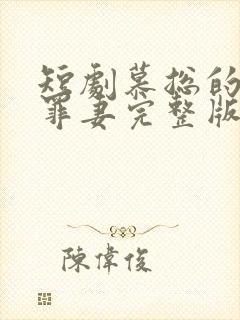 短劇慕總的
罪妻完整版
陳偉俊